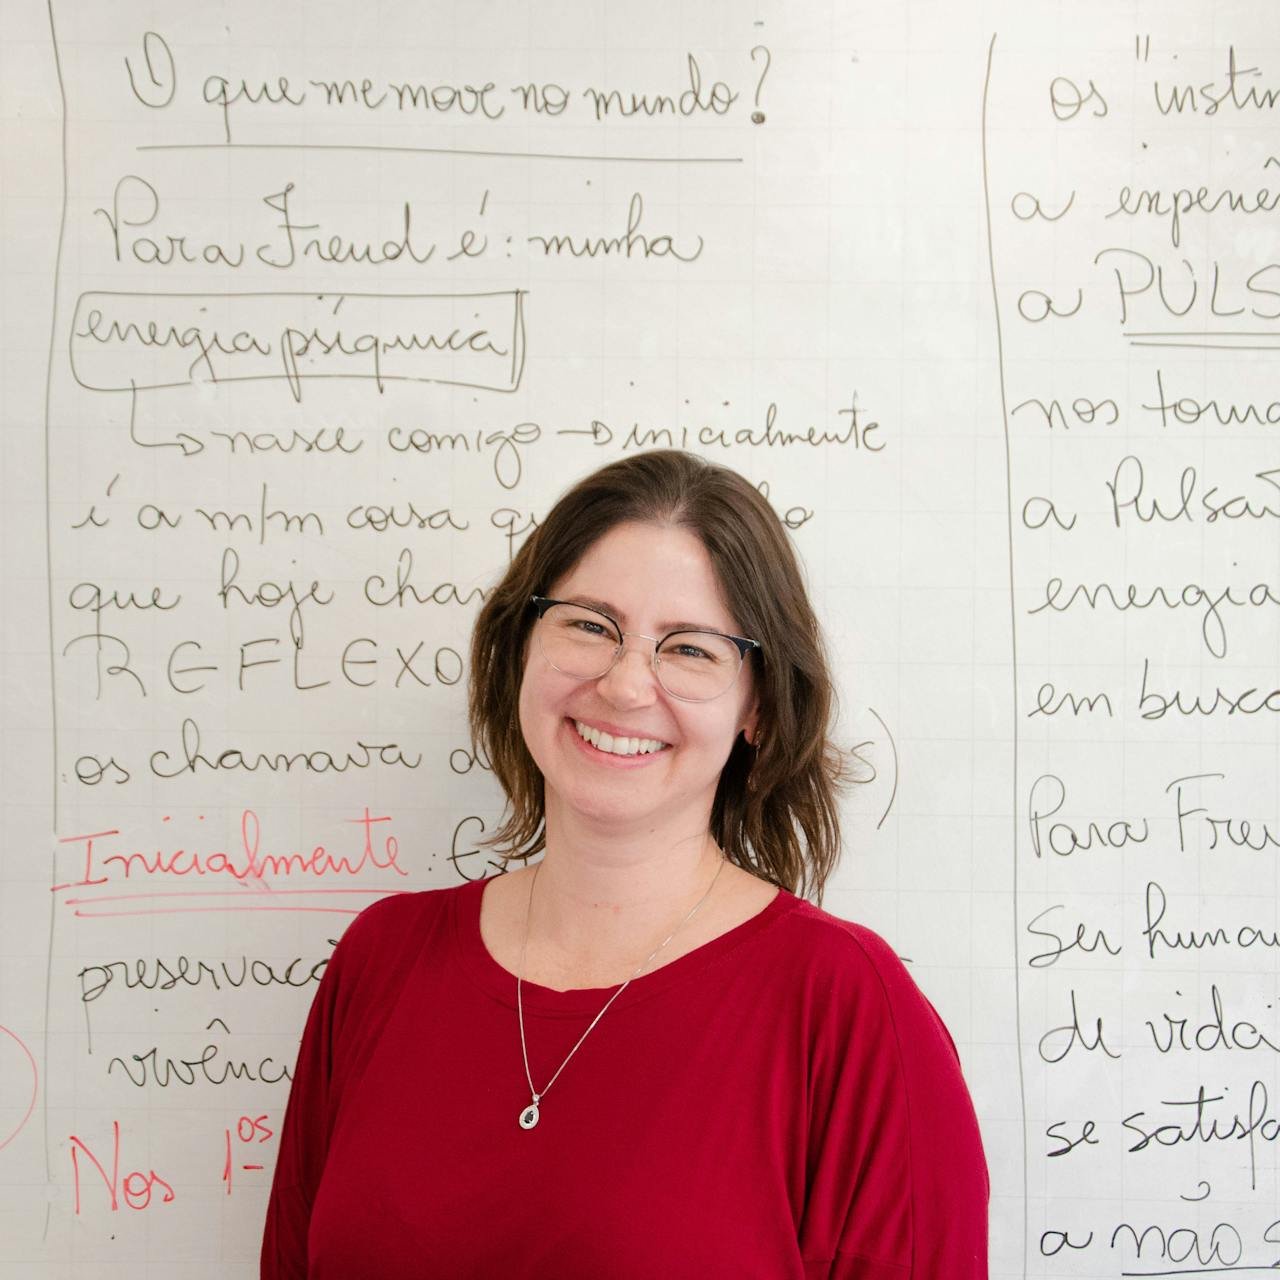 O que me move no mundo?
Para Freud é: minha
energia psíquica
nasce comigo → inicialmente
é a m/m coisa
que hoje cham
REFLEXO
os chamava d s)
Inicialmente: Ex
preservaçã
vivênci
Nos 1os
os "instin
a experiê
a PULS
nos torna
a Pulsão
energia
em busca
Para Freu
Ser human
de vida
se satisfa
a não s